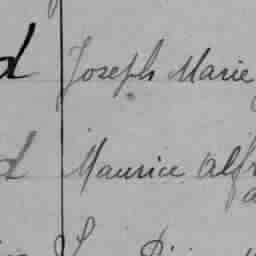 d Joseph Marie
d Maurice Alfr